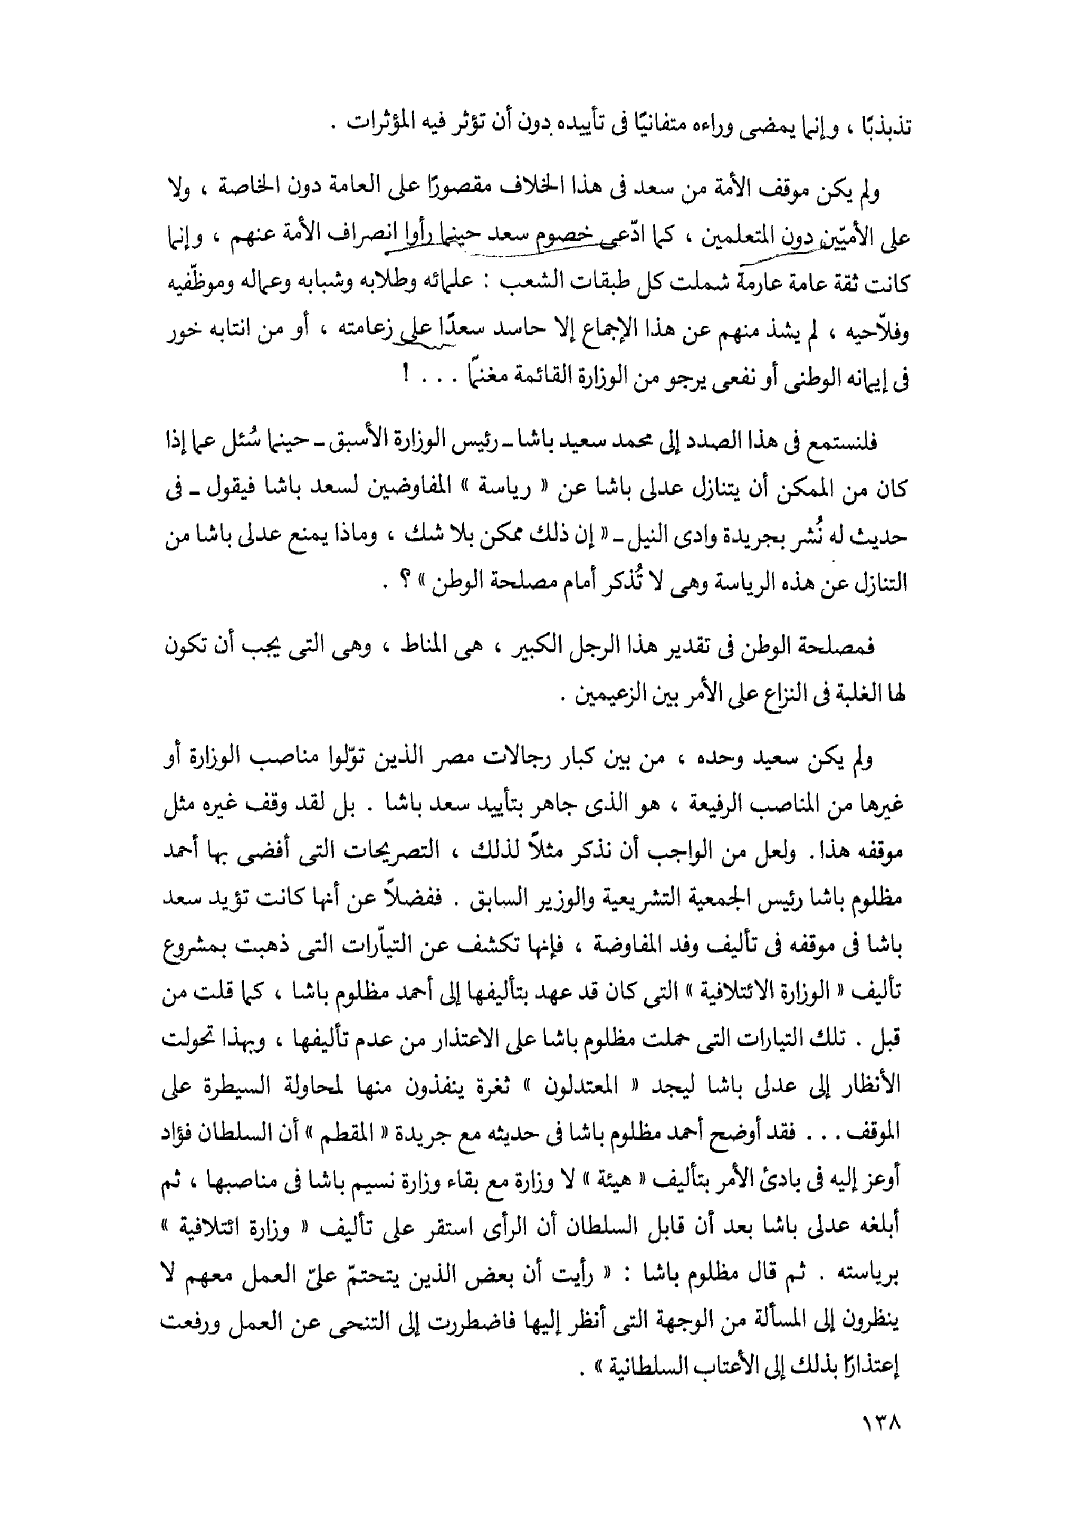 تذبذبًا ، وإنما يمضى وراءه متفانيًا فى تأييده دون أن تؤثر فيه المؤثرات .
ولم يكن موقف الأمة من سعد فى هذا الخلاف مقصورًا على العامة دون الخاصة ، ولا
على الأميّين دون المتعلمين ، كما ادّعى خصوم سعد حينما رأوا انصراف الأمة عنهم ، وإنما
كانت ثقة عامة عارمة شملت كل طبقات الشعب : علمائه وطلابه وشبابه وعماله وموظّفيه
وفلاّحيه ، لم يشذ منهم عن هذا الإجماع إلا حاسد سعدًا على زعامته ، أو من انتابه خور
فى إيمانه الوطنى أو نفعى يرجو من الوزارة القائمة مغنمًا ... !
فلنستمع فى هذا الصدد إلى محمد سعيد باشا ـ رئيس الوزارة الأسبق ـ حينما سُئل عما إذا
كان من الممكن أن يتنازل عدلى باشا عن « رياسة » المفاوضين لسعد باشا فيقول ـ فى
حديث له نُشر بجريدة وادى النيل ـ « إن ذلك ممكن بلا شك ، وماذا يمنع عدلى باشا من
التنازل عن هذه الرياسة وهى لا تُذكر أمام مصلحة الوطن » ؟ .
فمصلحة الوطن فى تقدير هذا الرجل الكبير ، هى المناط ، وهى التى يجب أن تكون
لها الغلبة فى النزاع على الأمر بين الزعيمين .
ولم يكن سعيد وحده ، من بين كبار رجالات مصر الذين تولّوا مناصب الوزارة أو
غيرها من المناصب الرفيعة ، هو الذى جاهر بتأييد سعد باشا . بل لقد وقف غيره مثل
موقفه هذا . ولعل من الواجب أن نذكر مثلاً لذلك ، التصريحات التى أفضى بها أحمد
مظلوم باشا رئيس الجمعية التشريعية والوزير السابق . ففضلاً عن أنها كانت تؤيد سعد
باشا فى موقفه فى تأليف وفد المفاوضة ، فإنها تكشف عن التيّارات التى ذهبت بمشروع
تأليف « الوزارة الائتلافية » التى كان قد عهد بتأليفها إلى أحمد مظلوم باشا ، كما قلت من
قبل . تلك التيارات التى حملت مظلوم باشا على الاعتذار من عدم تأليفها ، وبهذا تحولت
الأنظار إلى عدلى باشا ليجد « المعتدلون » ثغرة ينفذون منها لمحاولة السيطرة على
الموقف ... فقد أوضح أحمد مظلوم باشا فى حديثه مع جريدة « المقطم » أن السلطان فؤاد
أوعز إليه فى بادئ الأمر بتأليف « هيئة » لا وزارة مع بقاء وزارة نسيم باشا فى مناصبها ، ثم
أبلغه عدلى باشا بعد أن قابل السلطان أن الرأى استقر على تأليف « وزارة ائتلافية »
برياسته . ثم قال مظلوم باشا : « رأيت أن بعض الذين يتحتمّ علىّ العمل معهم لا
ينظرون إلى المسألة من الوجهة التى أنظر إليها فاضطررت إلى التنحى عن العمل ورفعت
إعتذارًا بذلك إلى الأعتاب السلطانية » .
١٣٨